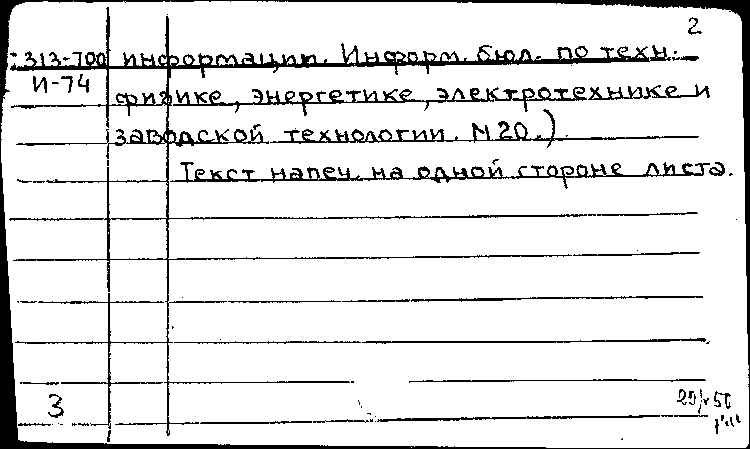 2
313-700 информации. Информ. бюл. по техн.
И-74 физике, энергетике, электротехнике и
заводской технологии. N 20.)
Текст напеч. на одной стороне листа.
3